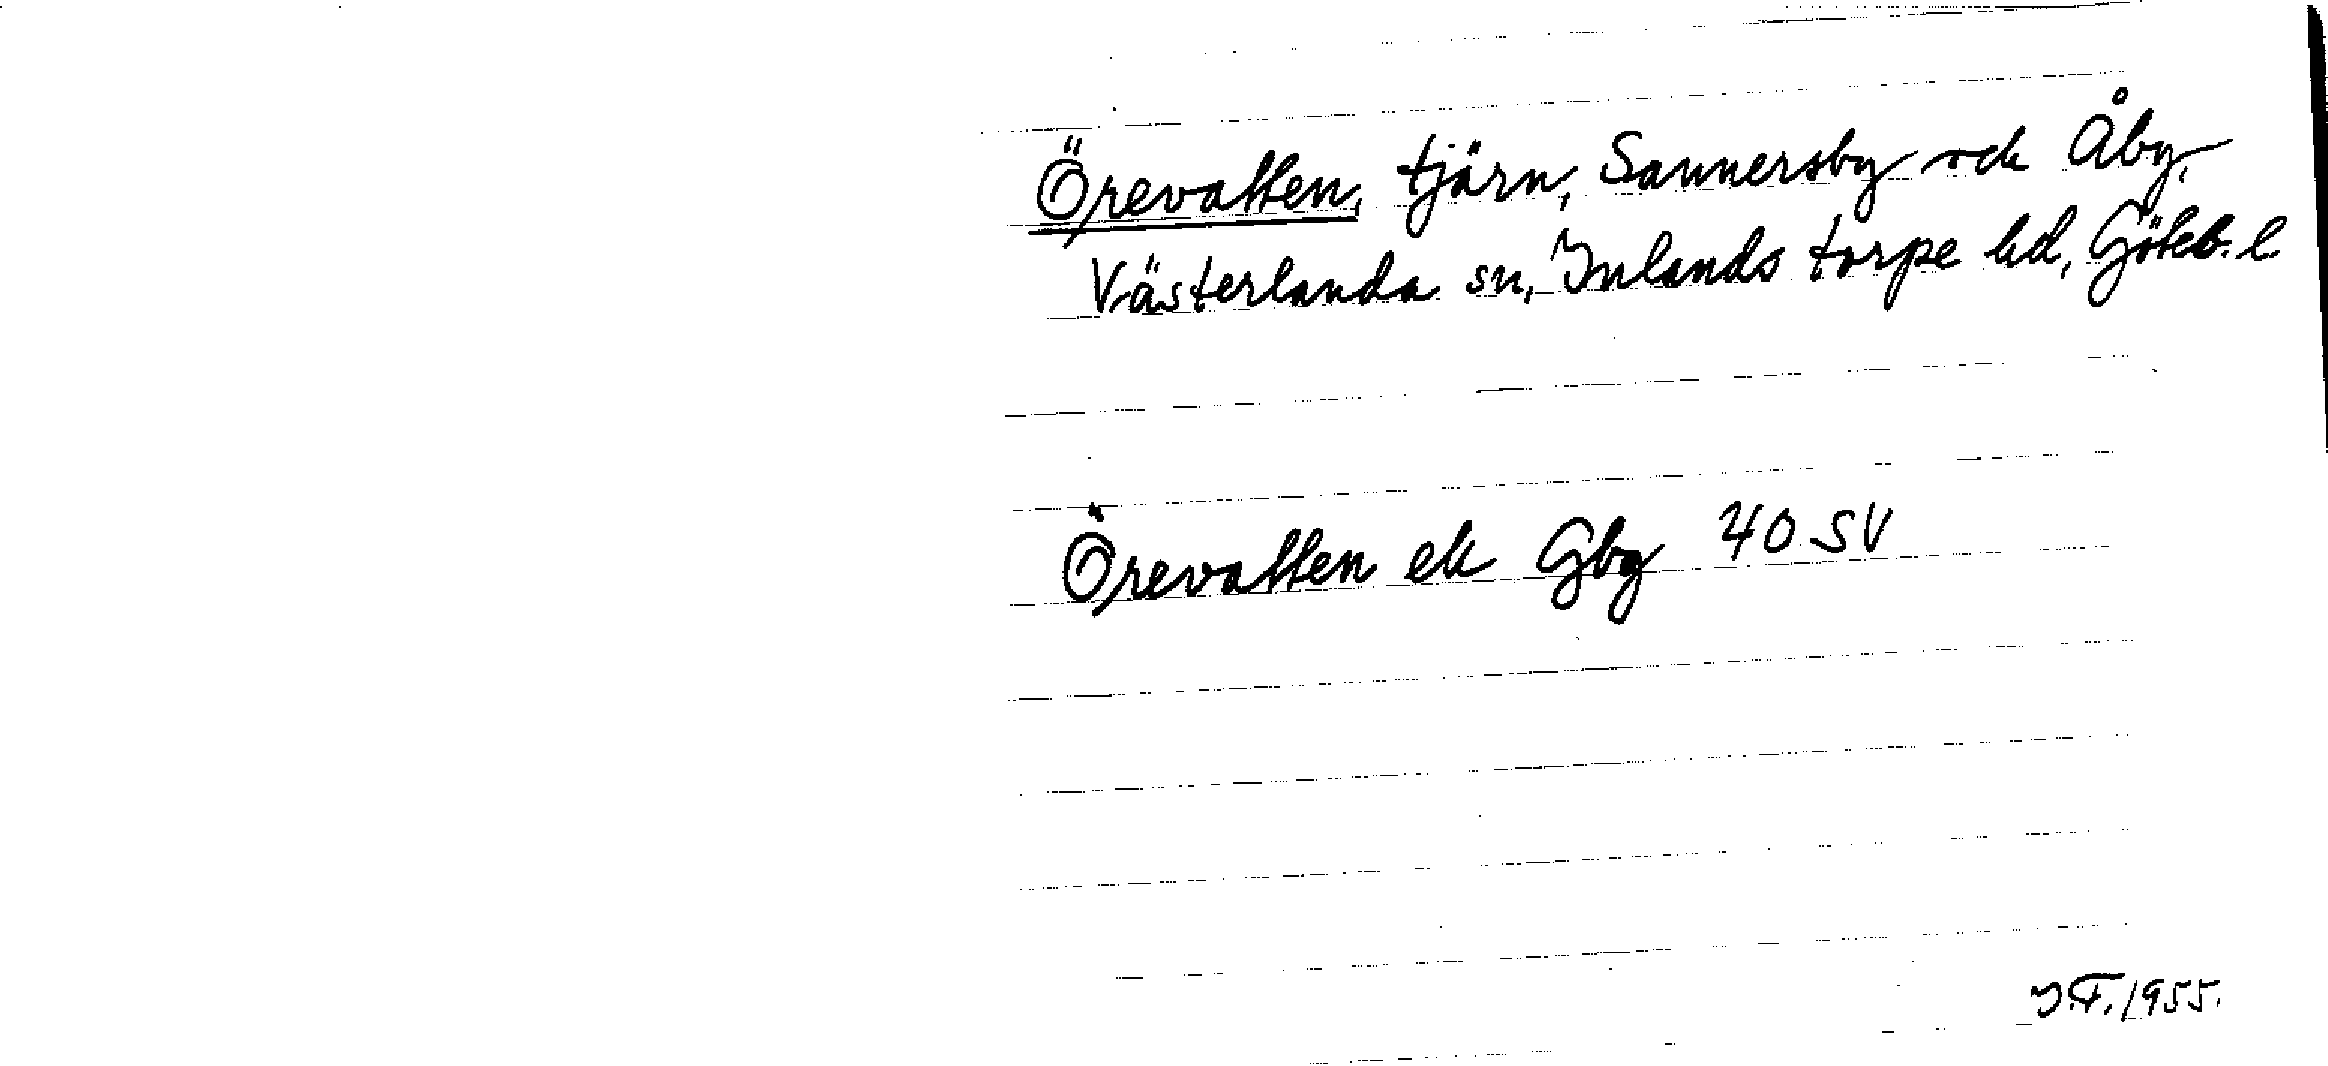 Örevatten, tjärn, Sannersby och Åby,
Västerlanda sn, Inlands torpe hd, Göteb. l
Örevatten ek Gbg 40 SV
J.F. 1955.